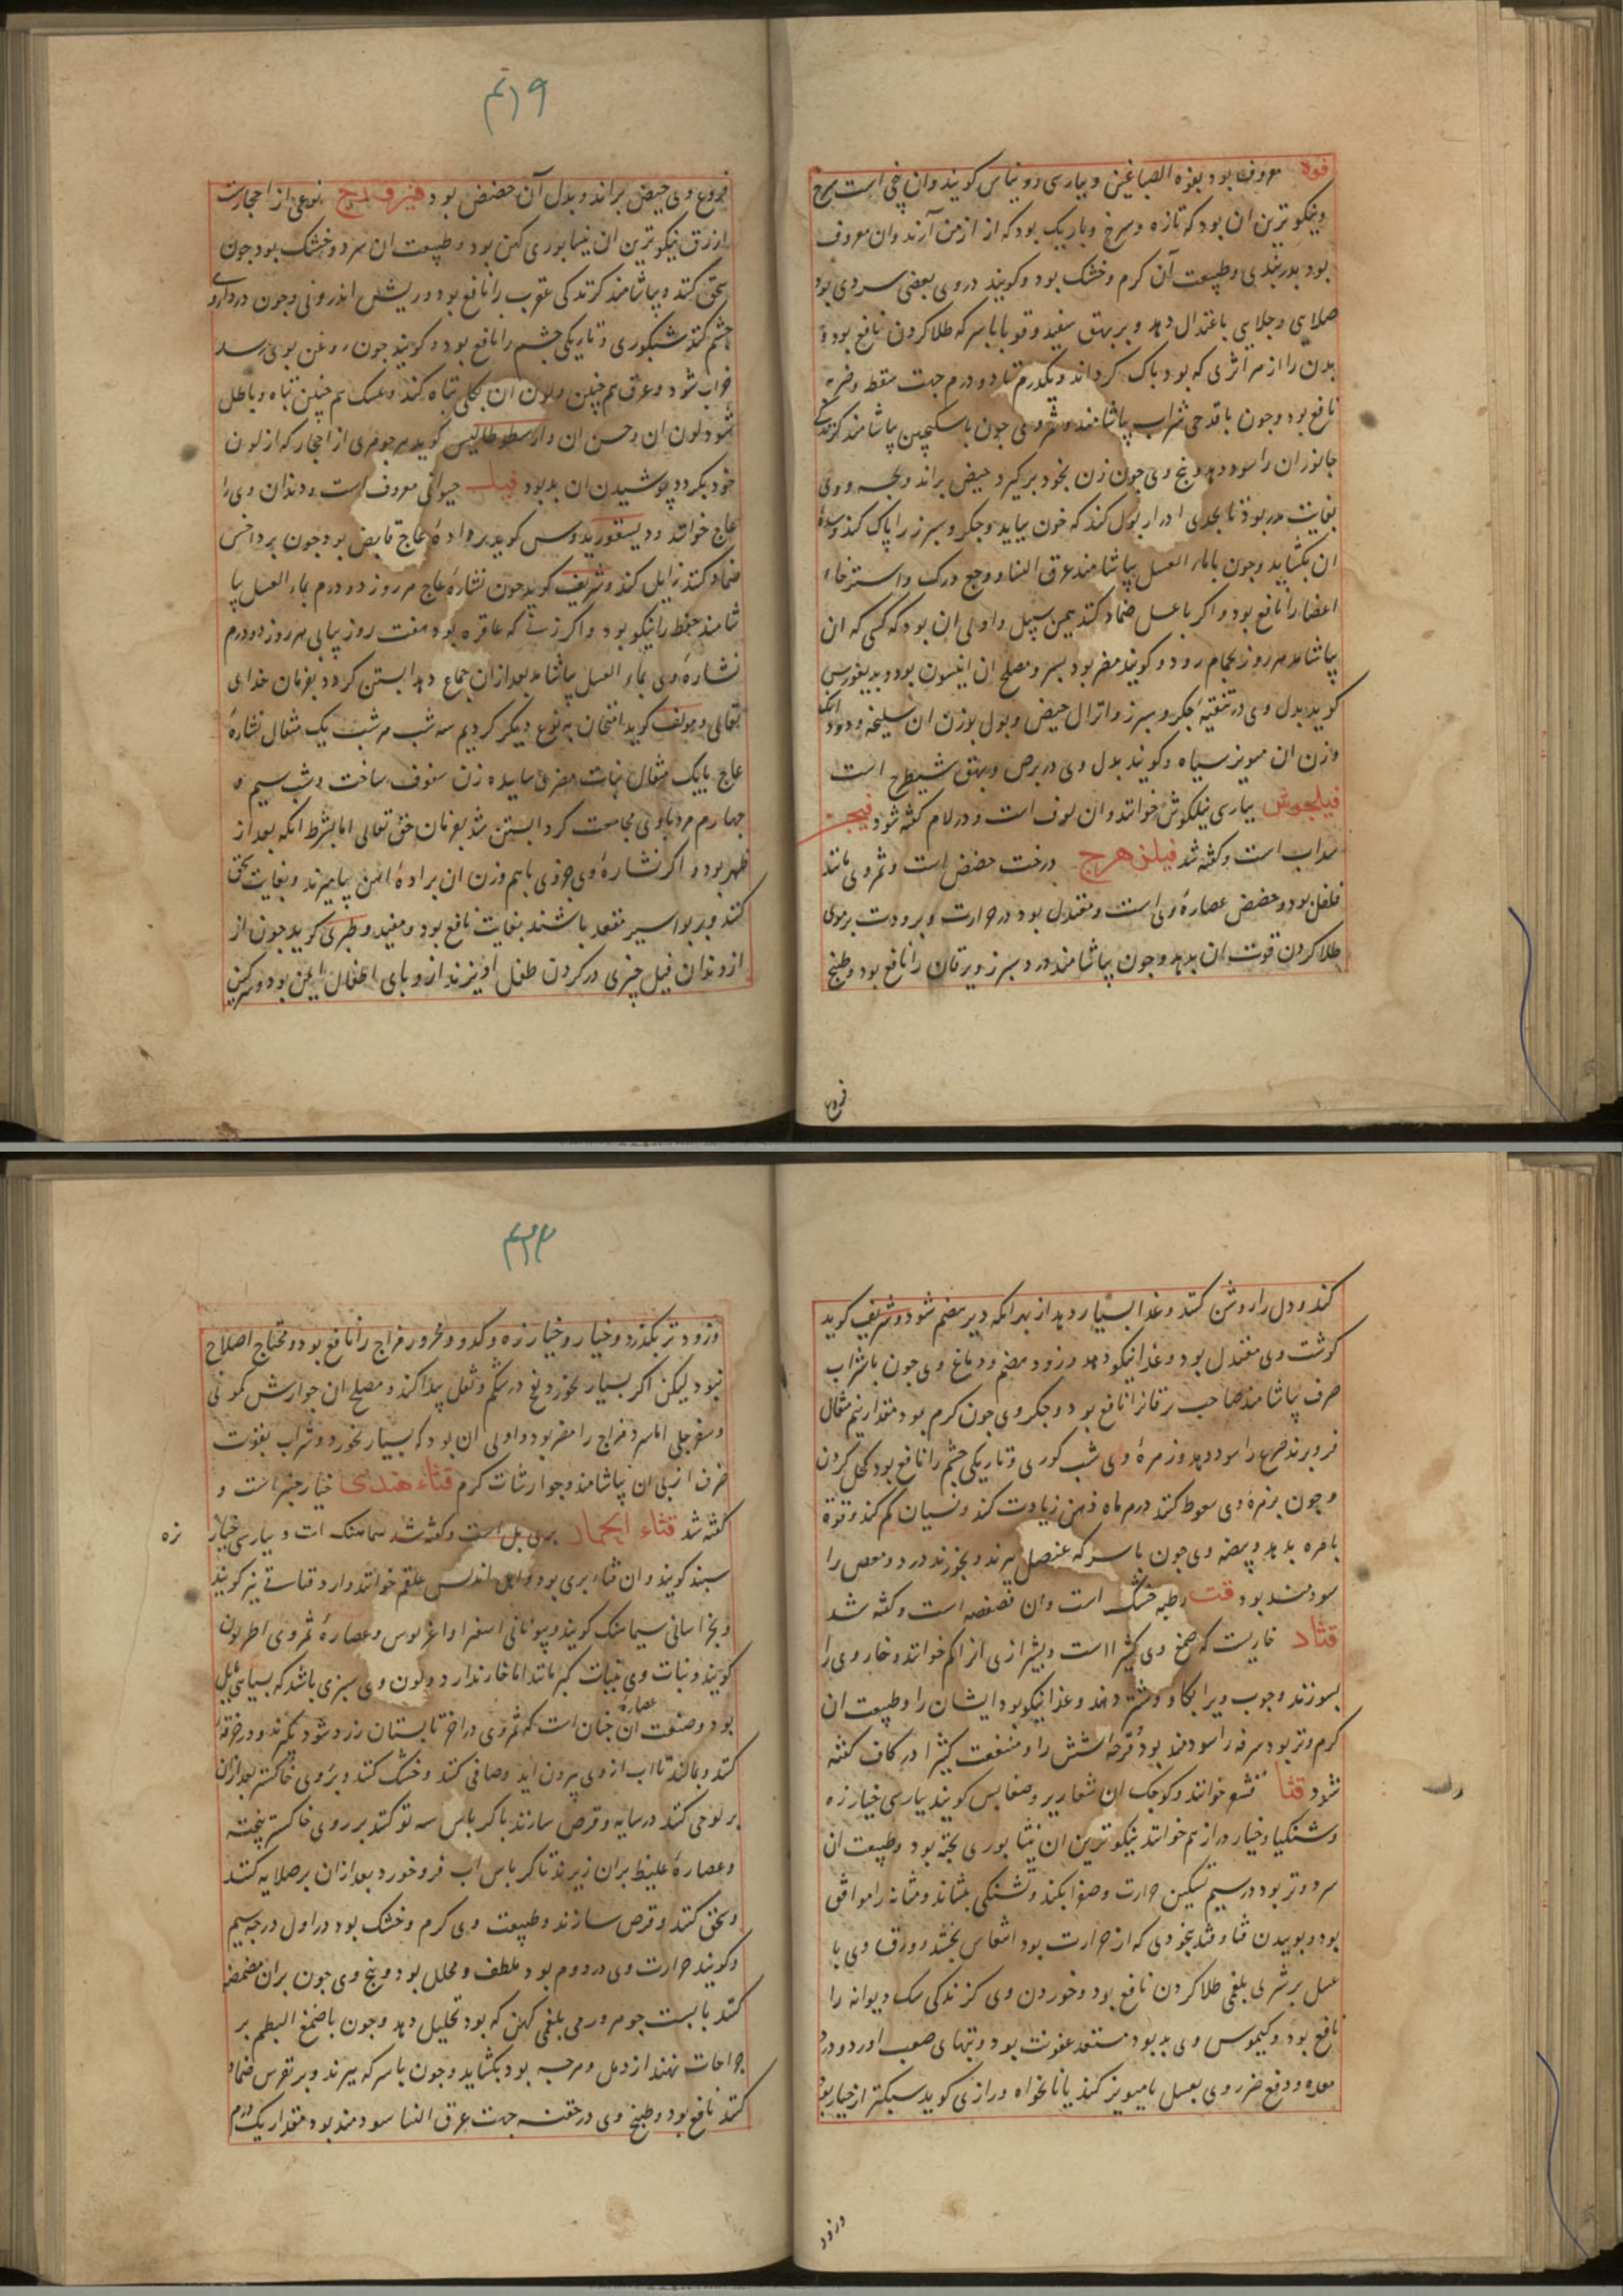 فوه معروف بود بفوه الصباغین و بپارسی روناس کویند وان بیخی است سرخ
و نیکوترین ان بود که تازه و سرخ و باریک بود که از ارمن آرند وان معروف
بود بدربندی و طبیعت آن کرم و خشک بود و کویند در وی بعضی سردی بود
جلایی باعتدال دهد و بر بهق سفید و قوبا با سرکه طلا کردن نافع بود و
بدن را از هر اثری که بود پاک کرداند و یکدرم تا دو درم جهت سقط و ضربه
نافع بود و چون با قدحی شراب بیاشامند و ثمر وی چون با سکنجبین بیاشامند کزندکی
جانوران را سود دهد و بیخ وی چون زن بخود برکیرد حیض براند و بچه و وی
بغایت مدر بود تا بحدی ادرار بول کند که خون بیاید و جکر و سپرز را پاک کند و سده
ان بکشاید و چون با ماء العسل بیاشامند عرق النسا و وجع ورک و استرخاء
اعضا را نافع بود و اکر با عسل ضماد کنند همین سبیل و اولی ان بود که کسی که ان
بیاشامد هر روز بحمام رود و کویند مضر بود بسر و مصلح ان انیسون بود و دیسقوریدس
کوید بدل وی در تنقیه جکر و سپرز و انزال حیض و بول بوزن ان سلیخه و دود
وزن ان مویز سیاه و کویند بدل وی در برص و بهق شیطرج است
فیلجوش بپارسی فیلکوش خوانند وان لوف است و در لام کفته شود فیجن
سداب است و کفته شد فیلزهرج درخت حضض است و ثمر وی مانند
فلفل بود و حضض عصاره وی است و معتدل بود در حرارت و برودت بر موی
طلا کردن قوت ان بدهد و چون بیاشامند درد سپرز و یرقان را نافع بود و طبیخ
فروع
۴۱۹
فروع وی حیض براند و بدل آن حضض بود فیروزج نوعی از احجارست
ازرق نیکوترین ان نیسابوری کهن بود و طبیعت ان سرد و خشک بود چون
سحق کنند و بیاشامند کزندکی عقرب را نافع بود و ریش اندرونی و چون در داروی
چشم کنند شبکوری و تاریکی چشم را نافع بود و کویند چون روغن بوی رسد
خراب شود و عرق هم چنین و لون ان بکلی تباه کند و مسک هم چنین تباه و باطل
شود لون ان و حسن ان و ارسطوطالیس کوید هر جوهری از احجار که از لون
خود بکردد پوشیدن ان بد بود فیل حیوانی معروف است و دندان وی را
عاج خوانند و دیسقوریدوس کوید براده عاج قابض بود چون بر داخس
ضماد کنند زایل کند و شریف کوید چون نشاره عاج هر روز دو درم بماء العسل بیا
شامند حفظ را نیکو بود و اکر زنی که عاقره بود هفت روز پیاپی هر روز دو درم
نشاره وی بماء العسل بیاشامد بعد ازان جماع دهد ابستن کردد بفرمان خدای
تعالی و مولف کوید امتحان بنوع دیکر کردیم سه شب هر شب یک مثقال نشاره
عاج با یک مثقال نبات مصری ساییده زن سفوف ساخت و شب سیم و
چهارم مرد با وی مجامعت کرد ابستن شد بفرمان حق تعالی اما بشرط انکه بعد از
طهر بود و اکر نشاره وی جزوی با هم وزن ان براده اهن بیامیزند و بغایت سحق
کنند و بر بواسیر مقعد باشند بغایت نافع بود و مفید و طبری کوید چون از
از دندان فیل چیزی در کردن طفل اویزند از وبای اطفال ایمن بود و سرکین
کند و دل را روشن کند و غذا بسیار دهد از بهر انکه دیر هضم شود و شریف کوید
کوشت وی معتدل بود و غذا نیکو دهد و زود هضم و دماغ وی چون با شراب
صرف بیاشامند صاحب یرقانرا نافع بود و جکر وی چون کرم بود مقدار نیم مثقال
فرو برند صرع را سود دهد و زهره وی شب کوری و تاریکی چشم را نافع بود کحل کردن
و چون بزهره وی سعوط کنند در هر ماه ذهن زیادت کند و نسیان کم کند و قوة
باصره بدهد و بیضه وی چون با سرکه عنصل پزند و بخورند درد و مغص را
سودمند بود قت رطبه خشک است وان فصفصه است و کفته شد
قتاد خاریست که صمغ وی کثیرا است و بشیرازی انرا کم خوانند و خار وی را
بسوزند و چوب ویرا بکاو و شتر دهند و غذا نیکو بود ایشان را و طبیعت ان
کرم و تر بود سرفه را سودمند بود و قرحه شش را و منفعت کثیرا در کاف کفته
شود قثا قشو خوانند و کوچک ان شعاریر و ضغابیس کویند بپارسی خیار زه
و شنکیار و خیار دراز هم خوانند نیکوترین ان نیشابوری پخته بود و طبیعت ان
سرد و تر بود در سیم تسکین حرارت و صفرا بکند و تشنکی بنشاند و مثانه را موافق
بود و بوییدن قثا و قثد بیخودی که از حرارت بود انتعاش بخشد و ورق وی با
عسل بر شری بلغمی طلا کردن نافع بود و خوردن وی کزندکی سک دیوانه را
نافع بود و کیموس وی بد بود مستعد عفونت بود و تبهای صعب اورد و درد
معده و دفع ضرر وی بعسل یا مویز کنند یا نانخواه و رازی کوید سبکتر از خیار بود
وزود
۴۲۳
وزود تر بکذرد و خیار و خیار زه و کدو محرور مزاج را نافع بود و محتاج اصلاح
نبود لیکن اکر بسیار بخورد نفخ در شکم و ثقل پیدا کند و مصلح ان جوارش کمونی
و سفرجلی اما سرد مزاج را مضر بود و اولی ان بود که بسیار نخورد و شراب بقوت
صرف از پی ان بیاشامند و جوارشات کرم قثاء هندی خیار چنبر است و
کفته شد قثاء الحمار بری بل است و کفته شد سماهنک است و بپارسی خیار زه
سبند کویند وان قثاء بری بود و اهل اندلس علقم خوانند وارد قثاء نیز کویند
و بخراسانی سیماهنک کویند و بیونانی اسفراواغرلوس و عصاره ثمر وی اطریون
کویند و نبات وی بنبات کبر مانند اما خار ندارد و لون وی سبزی باشد که بسیاهی مایل
بود و صنعت عصاره ان چنان است که ثمر وی در اخر تابستان زرد شود بکیرند و در خرقه
کنند و بمالند تا اب از وی بیرون اید و صافی کنند و خشک کنند و بروی خاکستر بعد ازان
بر لوحی کنند در سایه و قرص سازند با کرباس سه تو کنند بر روی خاکستر بیخته
و عصاره غلیظ بران ریزند تا کرباس اب فرو خورد بعد ازان بر صلایه کنند
و سحق کنند و قرص سازند و طبیعت وی کرم و خشک بود در اول درجه سیم
و کویند حرارت وی در دوم بود ملطف و محلل بود و بیخ وی چون بران مضمضه
کنند با پست جو هر ورمی بلغمی کهن که بود تحلیل دهد و چون با صمغ البطم بر
جراحات نهند از دمل و هرچه بود بکشاید و چون با سرکه پزند و بر نقرس ضماد
کنند نافع بود و طبیخ وی در حقنه جهت عرق النسا سودمند بود مقدار یک درم